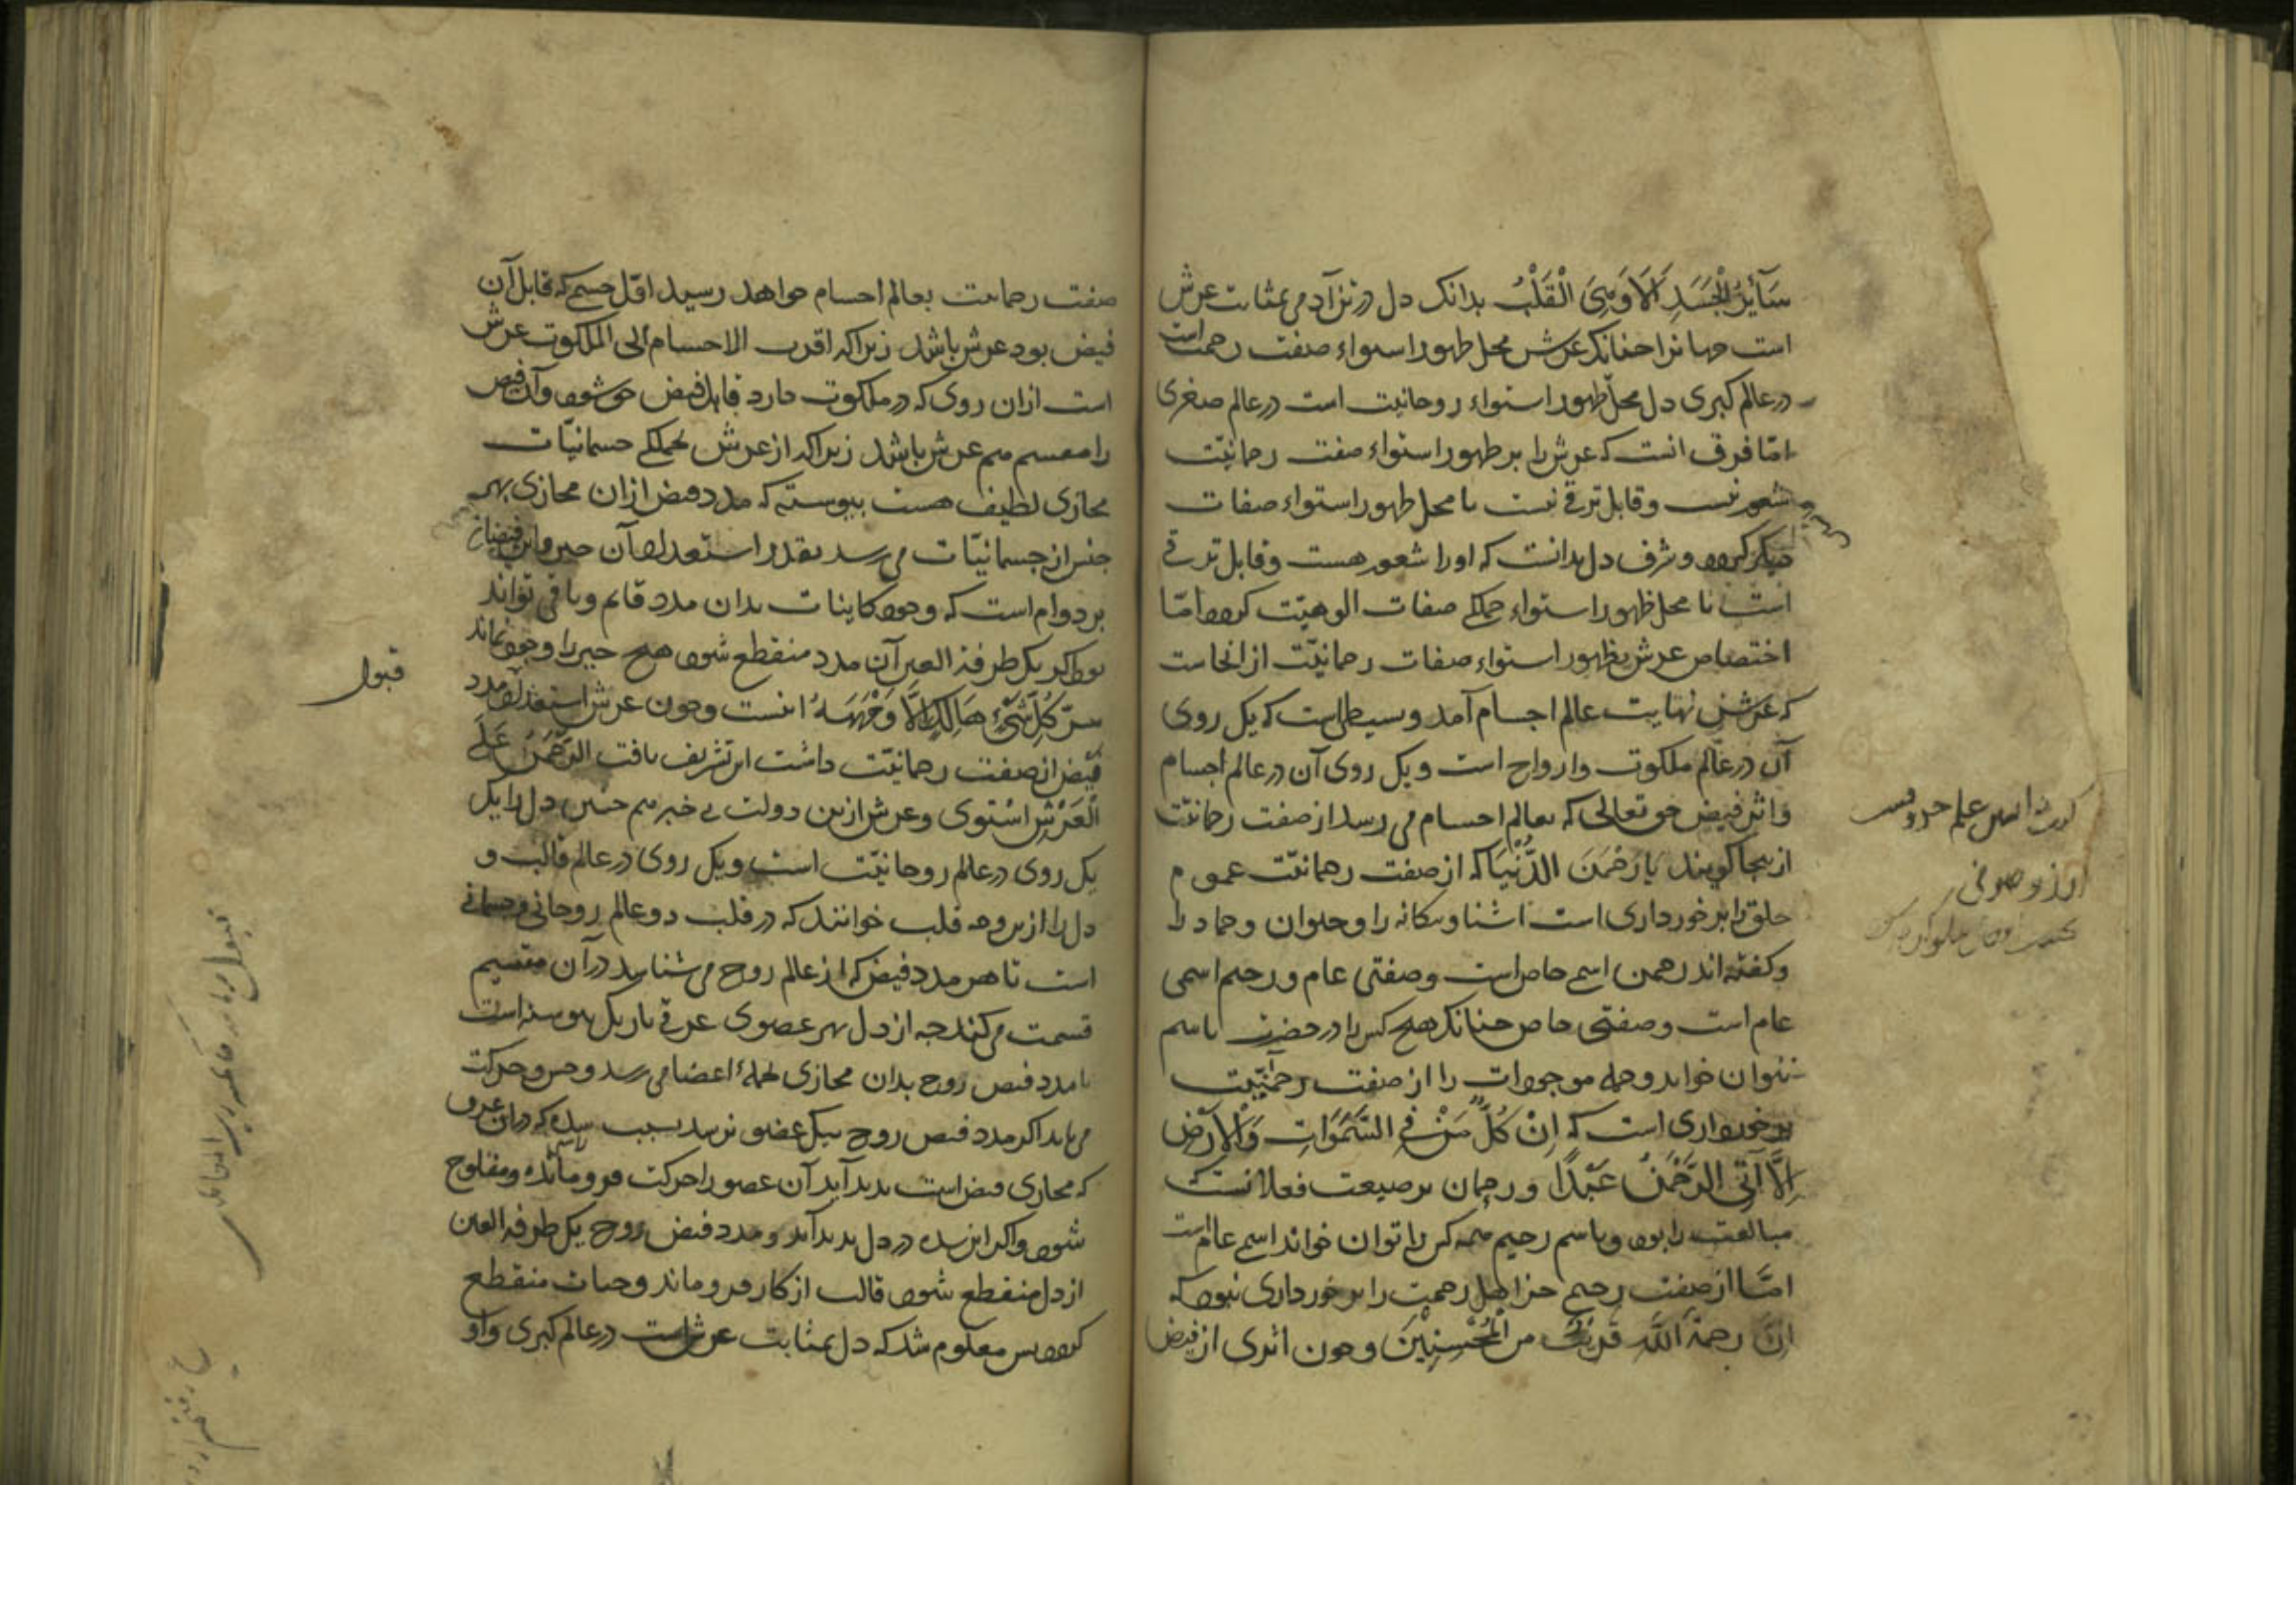 سَآئِرُ الْجَسَدِ اَلَا وَهِیَ الْقَلْبُ بدانک دل در تن آدمی بمثابت عرش
است جهانرا چنانک عرش محل ظهور استواء صفت رحمت است
در عالم کبری دل محلّ ظهور استواء روحانیت است در عالم صغری
امّا فرق انست که عرش را بر ظهور استواء صفت رحمانیّت
شعور نیست و قابل ترقی نیست تا محل ظهور استواء صفات
دیگر کردد و شرف دل بدانست که اورا شعور هست و قابل ترقی
است تا محل ظهور استواء جملکی صفات الوهیّت کردد امّا
اختصاص عرش بظهور استواء صفات رحمانیّت از انجاست
که عرش نهایت عالم اجسام آمد و بسیطی است که یک روی
آن در عالم ملکوت و ارواح است و یک روی آن در عالم اجسام
و اثر فیض حق تعالی که بعالم اجسام می رسد از صفت رحمانیّت
ازینجا کویند یا رَحْمٰنَ الدُّنْیَا که از صفت رحمانیّت عموم
خلق را برخورداری است اشنا و بیکانه را و حیوان و جماد را
و کفته اند رحمن اسمی خاص است و صفتی عام و رحیم اسمی
عام است و صفتی خاص چنانک هیچ کس را در حضرت باسم
نتوان خواند و جمله موجودات را از صفت رحمٰنیّت
برخورداری است که اِنْ کُلُّ مَنْ فِی السَّمٰوَاتِ وَالْاَرْضِ
اِلَّا آتِی الرَّحْمٰنِ عَبْدًا و رحمان بر صیغت فعلانست
مبالغت را بود و باسم رحیم همه کس را توان خواند اسمی عام است
امّا از صفت رحیم جز اهل رحمت را برخورداری نبود که
اِنَّ رحمةَ اللّٰهِ قَرِیبٌ من الْمُحْسِنِیْنَ و چون اثری از فیض
صفت رحمانیت بعالم اجسام خواهد رسید اوّل جسمی که قابل آن
فیض بود عرش باشد زیراکه اقرب الاجسام الی الملکوت عرش
است ازان روی که در ملکوت دارد قابل فیض حق شود و آن فیض
را مقسم هم عرش باشد زیراکه از عرش بجملکی جسمانیّات
مجاری لطیف هست پیوسته که مدد فیض ازان مجاری بهر
جنس از جسمانیّات می رسد بقدر استعداد آن چیز و این فیض از
بر دوام است که وجود کاینات بدان مدد قایم و باقی تواند
بود اکر یک طرفة العین آن مدد منقطع شود هیچ چیز را وجود نماند
سرّ کُلُّ شَیْءٍ هَالِکٌ اِلَّا وَجْهَهُ اینست و چون عرش استعداد مدد
فیض از صفت رحمانیّت داشت این تشریف یافت الرَّحْمٰنُ عَلَی
الْعَرْشِ اسْتَوٰی و عرش ازین دولت بی خبر هم چنین دل را یک
یک روی در عالم روحانیّت است و یک روی در عالم قالب و
دل را ازین وجه قلب خوانند که در قلب دو عالم روحانی و جسمانی
است تا هر مدد فیض که از عالم روح می ستاند در آن مقسیم
قسمت می کند چه از دل بهر عضوی عرقی باریک پیوسته است
تا مدد فیض روح بدان مجاری بجملهٔ اعضا می رسد و حس و حرکت
می یابد اکر مدد فیض روح بیک عضو نرسد بسبب سده که در ان عرق
که مجاری فیض است پدید آید آن عضو را حرکت فرومانده و مفلوج
شود و اکر این سده در دل پدید آید و مدد فیض روح یک طرفة العین
از دل منقطع شود قالب از کار فرو ماند و حیات منقطع
کردد پس معلوم شد که دل بمثابت عرش است در عالم کبری و او
قبول